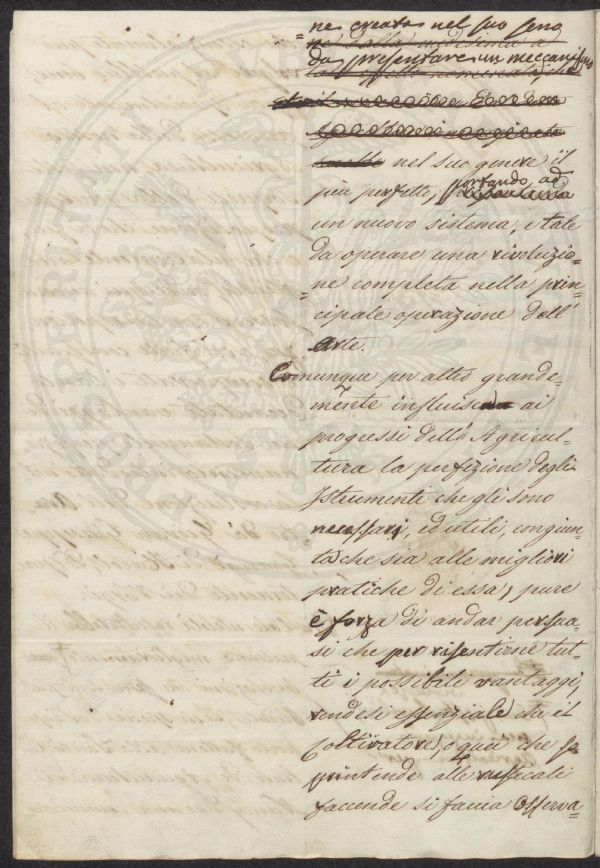 = ne creata nel suo seno
da presentare un meccanismo
nel suo genere il
più perfetto, portando ad
un nuovo sistema, e tale
da operare una rivoluzio=
= ne completa nella prin=
= cipale operazione dell'
Arte.
Comunque per altro grande=
mente influisca ai
progressi dell'Agricul=
tura la perfezione degli
Istrumenti che gli sono
necessarj, ed utili, congiun=
ta che sia alle migliori
pratiche di essa, pure
è forza di andar persua=
si che per risentirne tut=
ti i possibili vantaggi,
rendesi essenziale che il
Coltivatore, o quei che so=
printende alle rusticali
faccende si faccia Osserva=